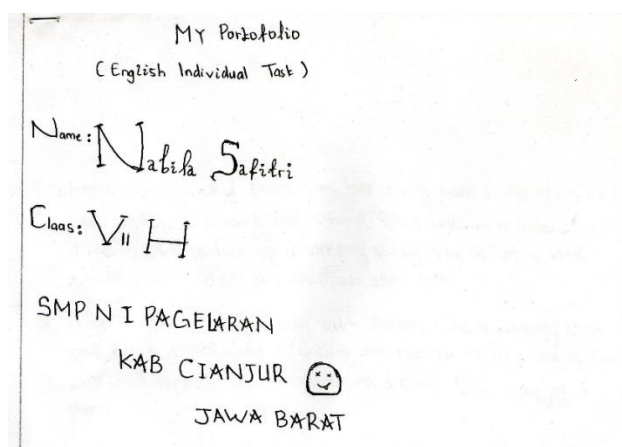 My Portofolio
(English Individual Task)
Name: Nabila Safitri
Claas: VII H
SMP N I PAGELARAN
KAB CIANJUR
JAWA BARAT